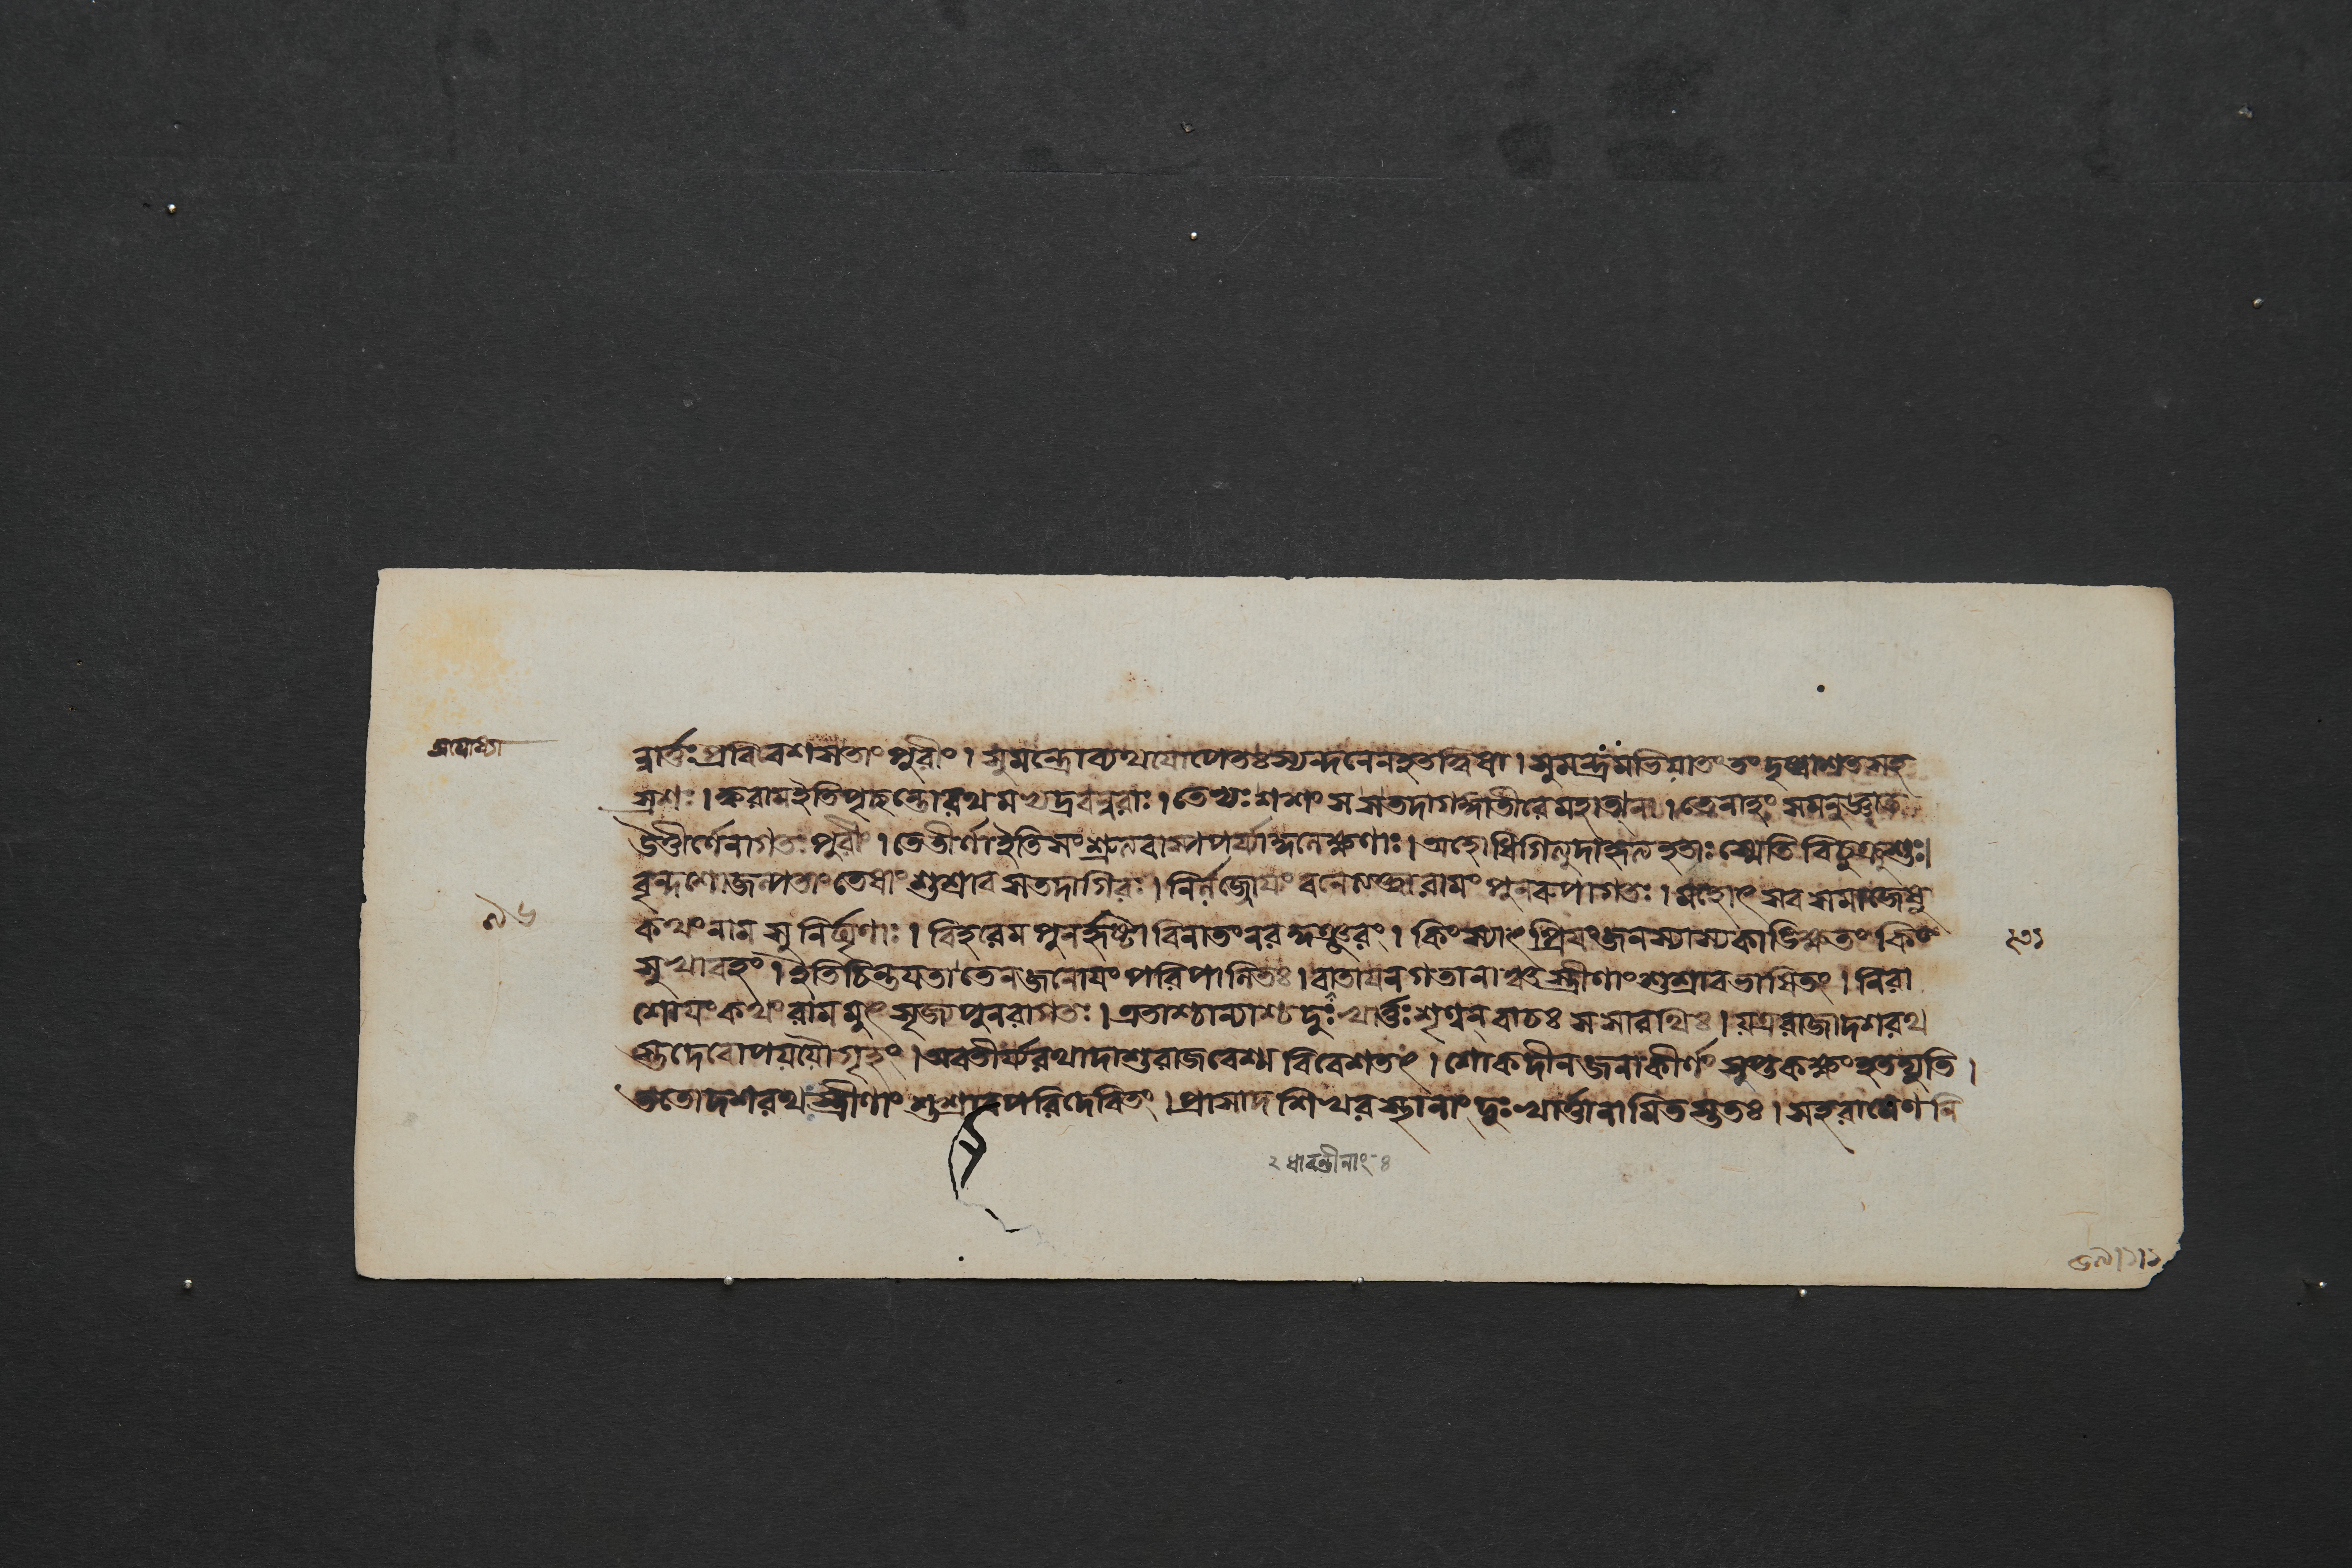 অযোধ্যা
ন্নার্ত্তঃ প্রবিবেশ সতাং পুরীং । সুমন্ত্রো ব্যথযোপেতঃ স্যন্দনেন হৃতত্বিষা । সুমন্ত্রমভিযাতং তং দৃষ্ট্বা শতসহ
স্রশঃ । ক্ব রাম ইতি পৃচ্ছন্তো রথমভ্যদ্রবন্নরাঃ । তেভ্যঃ শশংস স তদা গঙ্গাতীরে মহাত্মনা । তেনাহং সমনুজ্ঞাত
উত্তীর্ণেনাগতঃ পুরীং । তে তীর্ণা ইতি সংশ্রুত্য বাষ্পপর্য্যাকুলেক্ষণাঃ । অহো ধিগিত্যুদাহৃত্য হতাঃ স্মেতি বিচুক্রুশুঃ।
বৃন্দশো জল্পতাং তেষাং শুশ্রাব স তদা গিরঃ । নির্লজ্জোযং বনে ত্যক্ত্বা রামং পুনরুপাগতঃ । মহোৎসবসমাজেষু
কথং নাম সুনির্ঘৃণাঃ । বিহরেম পুনর্হৃষ্টা বিনা তং
কিং স্যাৎ প্রিযং জনস্যাস্য কাঙ্ক্ষিতং কিং
সুখাবহং । ইতি চিন্তযতা তেন জনোযং পরিপালিতঃ । বাতাযনগতানাঞ্চ স্ত্রীণাং শুশ্রাব ভাষিতং । নিরা
শোযং কথং রামমুৎসৃজ্য পুনরাগতঃ । এতাশ্চান্যাশ্চ দুঃখার্ত্তঃ শৃণ্বন্ বাচঃ স সারথিঃ । যত্র রাজা দশরথ
স্তদেবোপযযৌ গৃহং । অবতীর্য্য রথাদাশু রাজবেশ্ম বিবেশ তৎ । শোকদীনজনাকীর্ণং সপ্তকক্ষং হৃতদ্যুতি ।
ততো দশরথস্ত্রীণাং শুশ্রাব পরিদেবিতং । প্রাসাদশিখরস্থানাং দুঃখার্ত্তানামিতস্ততঃ । সহ রামেণ নি
২ ধাবন্তীনাং ৪